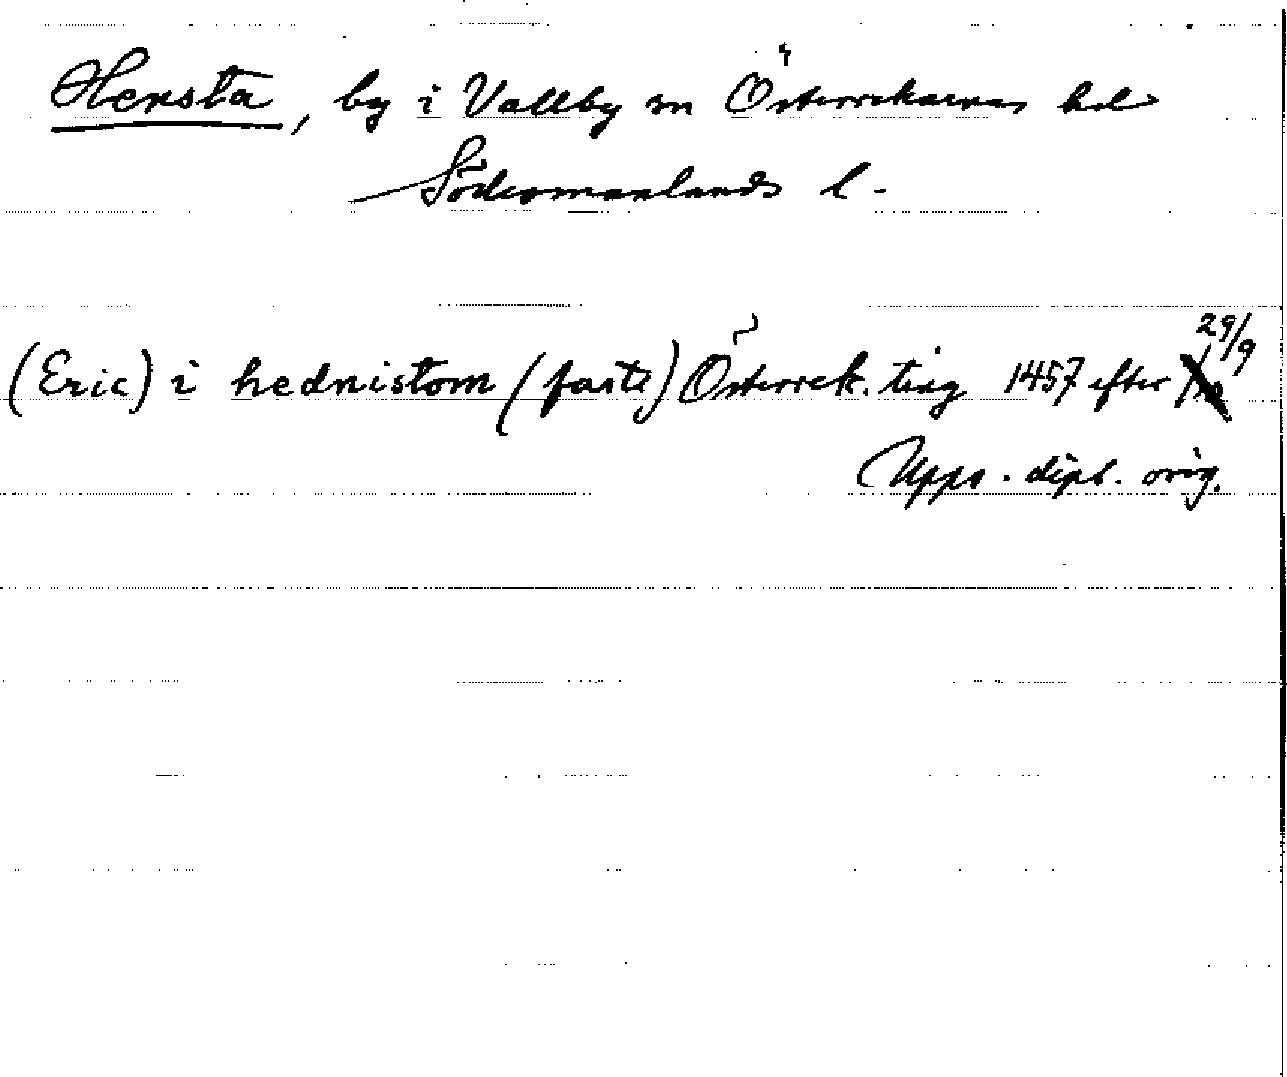 Hensta, by i Vallby sn Österrekarnes hd
Södermanlands l.
(Eric) i hednistom (faste) Österrek. ting 1457 efter 29/9
Upps. dipl. orig.